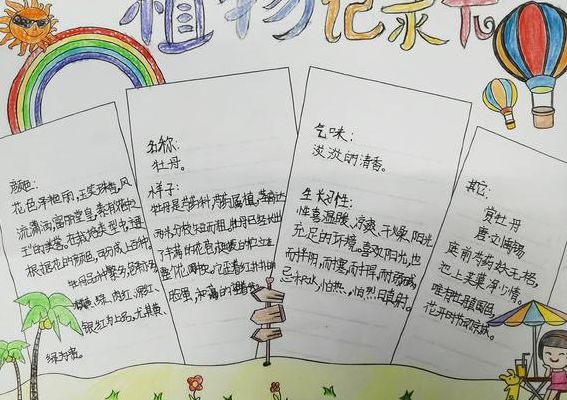 植物记录卡
颜色:
花色平艳丽,玉笑珠香,风
流潇洒,富丽堂皇,素有花中之
王的美誉。在栽培类型中,主要
根据花的颜色,可分成上百个
品种繁多,色泽亦多
绿,肉红,深红,
银红为上品,尤其黄、
绿为贵。
名称:
牡丹。
样子:
牡丹是芍药科,芍药属植,茎高达
两米,分枝短而粗。牡丹已经长出
了丰满的花
脸蛋,
气味:
淡淡的清香。
生长习性:
性喜温暖,凉爽、干燥、阳光
充足的环境。喜欢阳光,也
耐半阴,耐寒,耐干旱,耐弱碱,
忌积水,怕热,怕烈日直射。
其它:
赏牡丹
唐 刘禹锡
庭前芍药妖无格,
池上芙蕖净少情。
唯有牡丹真国色,
花开时节动京城。